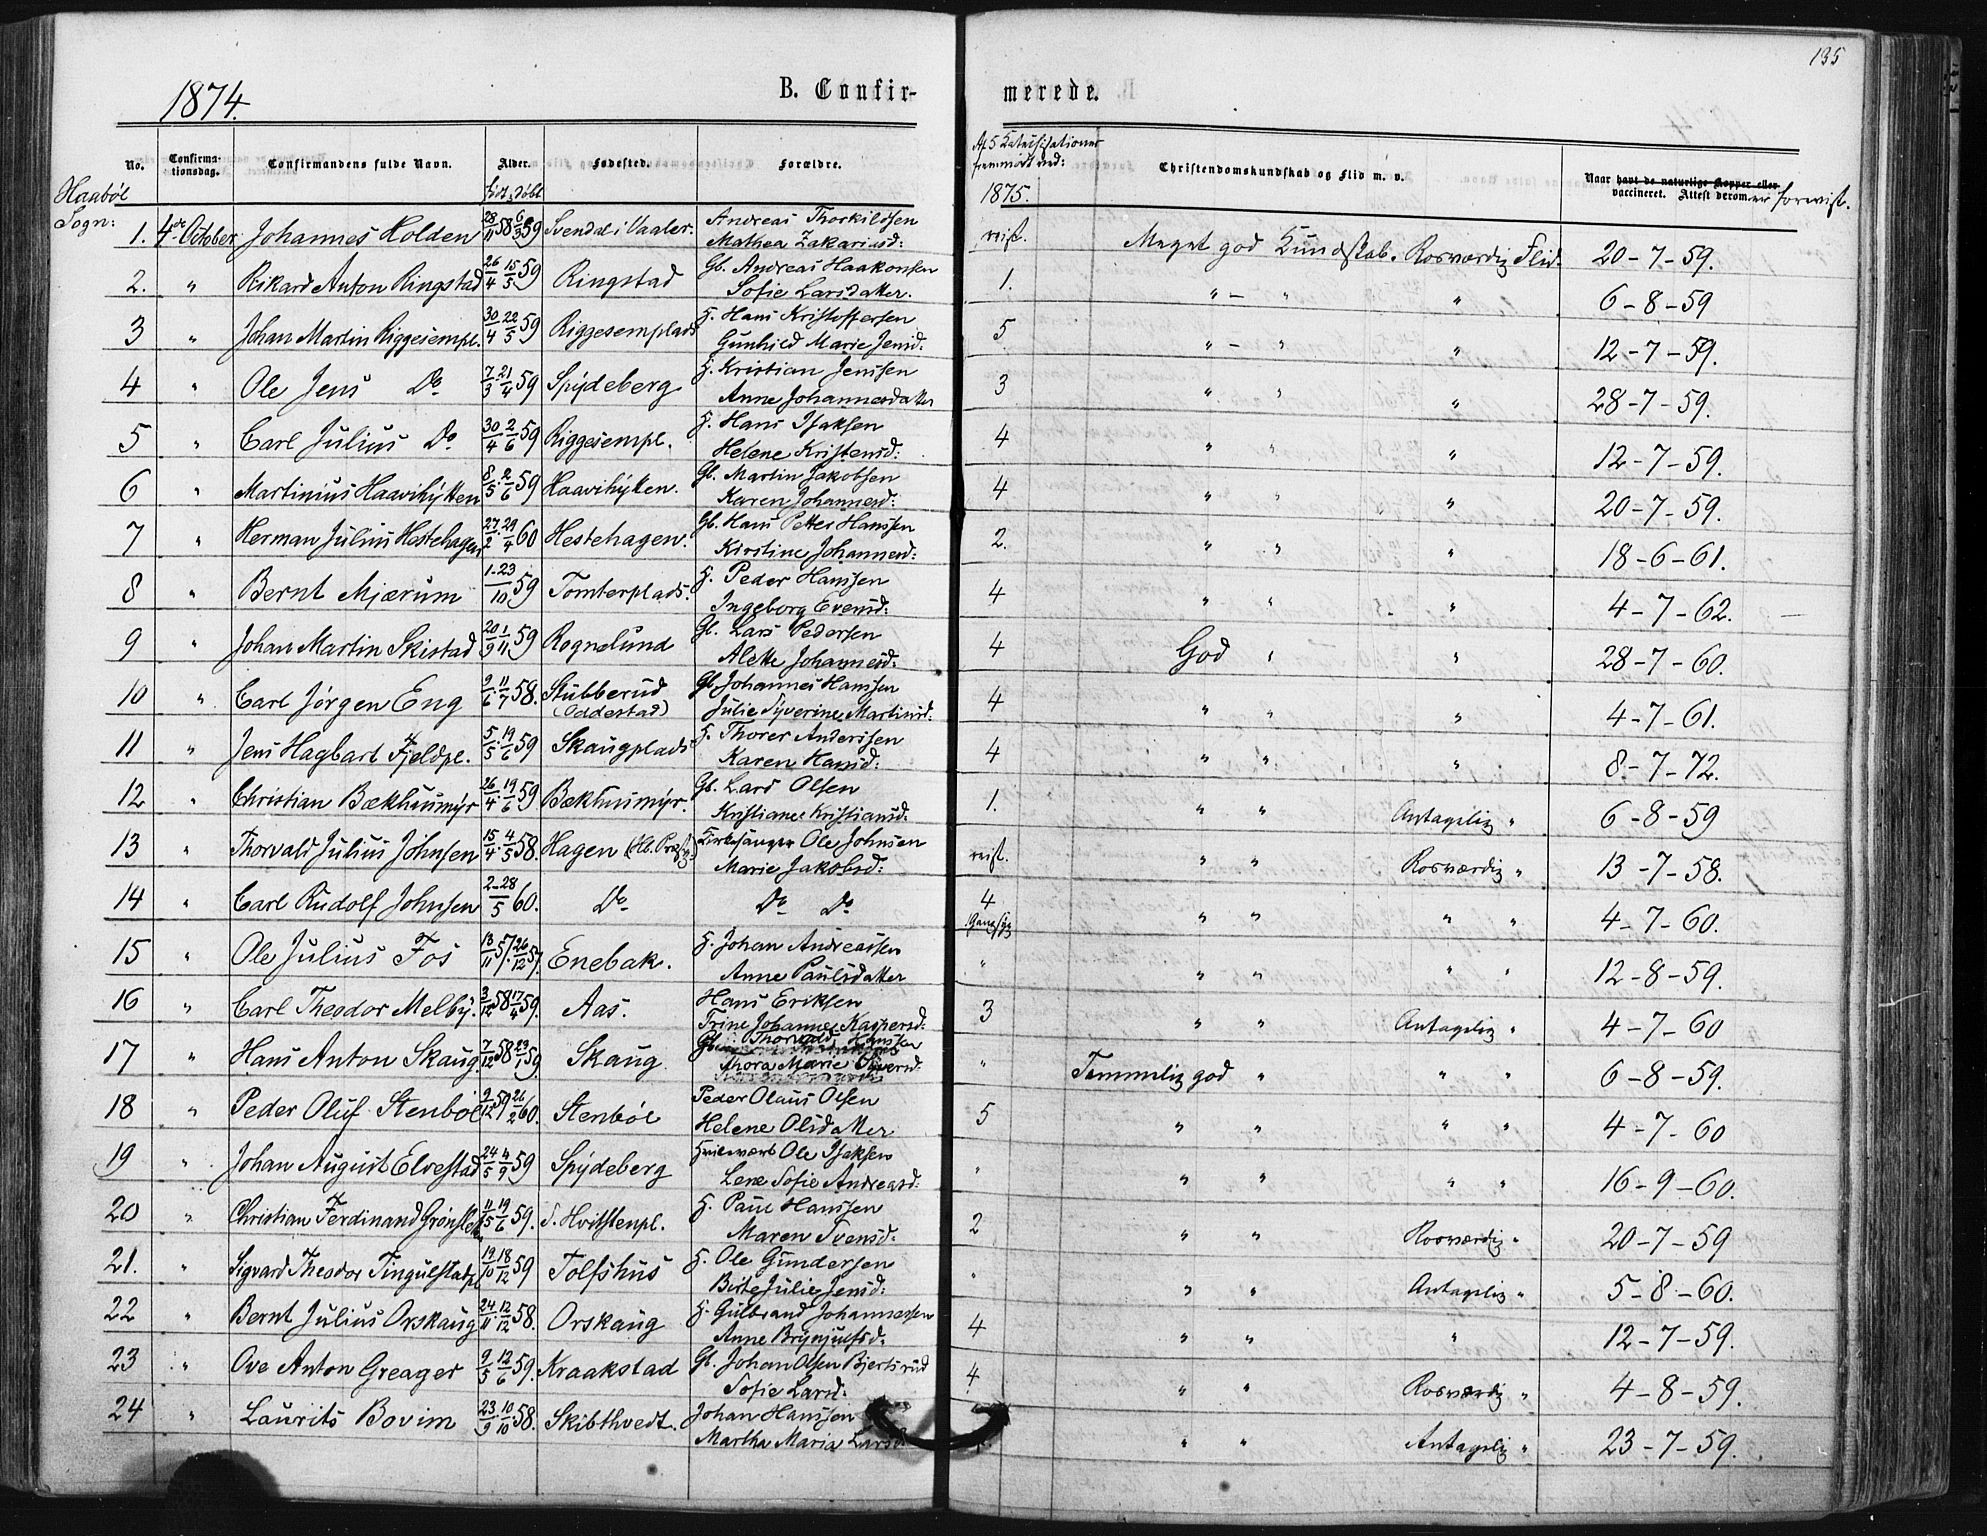 135
1874.
B. Confir-
merede.
No.
Confirma-
tionsdag.
Confirmandens fulde Navn.
Alder.
Fødested.
Forældre.
Af 5 Katechisationer
fremmødt ved:
Christendomskundskab og Flid m. v.
Naar havt de naturlige Kopper eller
vaccineret. Attest derom er forevist.
1875.
Haabøl
Sogn:
1. 4de October Johannes Holden 28/11 58 6/3 59 Svendal i Vaaler. Andreas Thorkildsen
Mathea Zakariasd: reist. Meget god Kundskab. Rosværdig Flid. 20-7-59.
2. " Rikard Anton Ringstad 26/4 15/5 59 Ringstad Gb. Andreas Haakonsen
Sofie Larsdatter. 1. " — " " 6-8-59
3 " Johan Martin Riggesempl. 30/4 22/5 59 Riggesemplads H. Hans Kristoffersen
Gunhild Marie Jensd. 5 " — " " 12-7-59.
4 " Ole Jens Do 7/3 21/4 59 Spydeberg H. Kristian Jenssen
Anne Johannesdatter 3 " " " 28-7-59.
5 " Carl Julius Do 30/4 2/6 59 Riggesempl. H. Hans Isaksen
Helene Kristensd: 4 " " " 12-7-59.
6 " Martinius Haavihytten 8/5 2/6 59 Haavihytten. Gb. Martin Jakobsen
Karen Johannesd: 4 " " " 20-7-59.
7 " Herman Julius Hestehagen 27/2 29/4 60 Hestehagen. Gb. Hans Petter Hanssen
Kirstine Johannesd: 2. " " " 18-6-61.
8 " Bernt Mjærum 1-23/10 59 Tomterplads. H. Peder Hanssen
Ingeborg Evensd: 4 " " " 4-7-62.
9 " Johan Martin Skistad 20/9 1/11 59 Rognelund Gb. Lars Pedersen
Alette Johannesd: 4 God " " 28-7-60.
10 " Carl Jørgen Eng 2/6 11/7 58. Stubberud
(Oddestad) Gb. Johannes Hanssen
Julie Syverine Martinsd. 4 " " " 4-7-61.
11 " Jens Hagbart Fjeldpl. 5/5 19/6 59 Skaugplads H. Thorer Anderssen
Karen Hansd: 4 " " " 8-7-72.
12 " Christian Bækhusmyr 26/4 19/6 59 Bækhusmyr. Gb. Lars Olsen
Kristiane Kristiansd: 1. " " Antagelig " 6-8-59
13 " Thorvald Julius Johnsen 15/4 4/5 58. Hagen Kirkesanger Ole Johnsen
Marie Jakobsd: reist. " " Rosværdig " 13-7-58.
14 " Carl Rudolf Johnsen 2-28/5 60. Do Do Do 4 " " " " 4-7-60.
15 " Ole Julius Fos 13/11 57. 26/12 57. Enebak. H. Johan Andreassen
Anne Paulsdatter " " " " " 12-8-59.
16 " Carl Theodor Melby. 3/12 58 17/4 59. Aas. Hans Eriksen
Trine Johannes Kaspersd: 3 " " Antagelig " 4-7-60
17 " Hans Anton Skaug. 7/12 58 23/1 59. Skaug Gb. Thorvald Hanssen
Thora Marie Syversd. " Temmelig god " " " 6-8-59.
18 " Peder Oluf Stenbøl 2/12 59 26/2 60. Stenbøl Peder Olaus Olsen
Helene Olsdatter 5 " " " " 4-7-60
19 " Johan August Elvestad 24/5 4/9 59 Spydeberg Ole Isaksen
Lene Sofie Andreasd: " " " " " 16-9-60.
20 " Christian Ferdinand 11/5 19/6 59. S. Hvitstenpl. H. Paul Hanssen
Maren Svensd: 2 " " Rosværdig " 20-7-59
21. " Sigvard Theodor Tingulstadpl 19/10 18/12 59 Tolfshus H. Ole Gundersen
Birte Julie Jensd: " " " Antagelig " 5-8-60.
22 " Bernt Julius Orskaug 24/11 12/12 58. Orskaug H. Gulbrand Johannessen
Anne Brynjulfsd. 4 " " " 12-7-59.
23 " Ove Anton Greager 9/5 12/6 59. Kraakstad Gb. Johan Olsen Bjertsrud
Sofie Larsd: 4 " " Rosværdig " 4-8-59.
24 " Laurits Bovim 23/9 10/10 58. Skibthvedt. Johan Hanssen
Martha Maria Larsd " " Antagelig " 23-7-59.